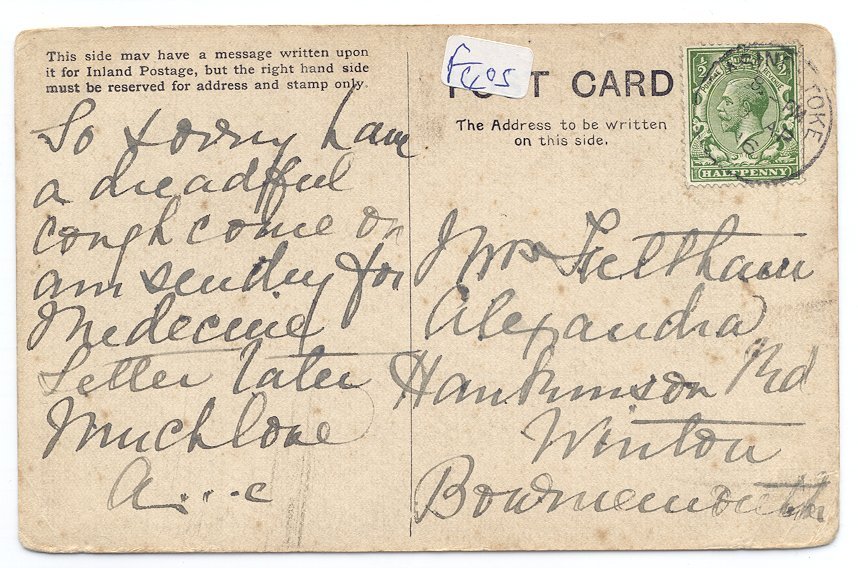 This side may have a message written upon
it for Inland Postage, but the right hand side
must be reserved for address and stamp only.
So sorry have
a dreadful
cough come on
am sending for
Medecine
Letter later
Much love
A...c
POST CARD
The Address to be written
on this side.
HALFPENNY
Mrs Feltham
Alexandra
Hankinson Rd
Winton
Bournemouth